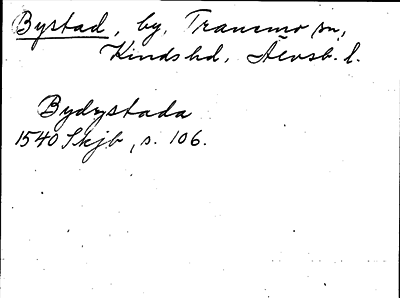 Bystad, by, Tranemo sn,
Kinds hd, Älvsb. l.
Bydystada
1540 Skjb, s. 106.